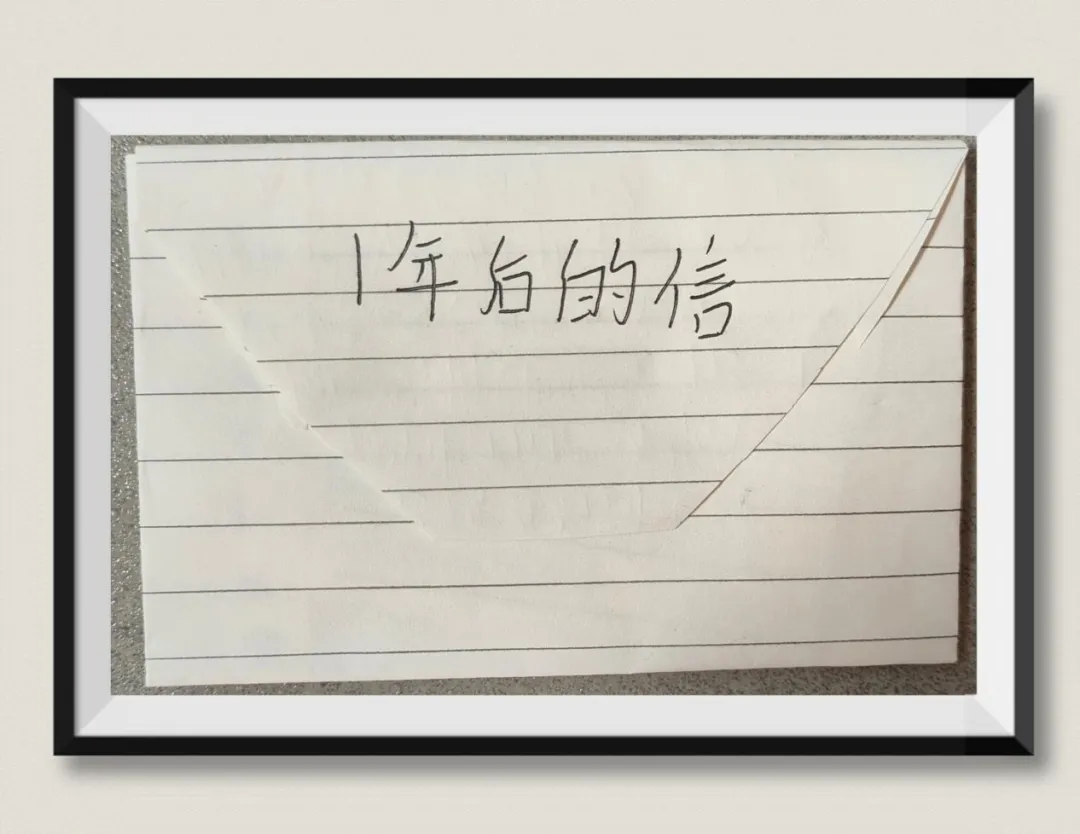 1年后的信